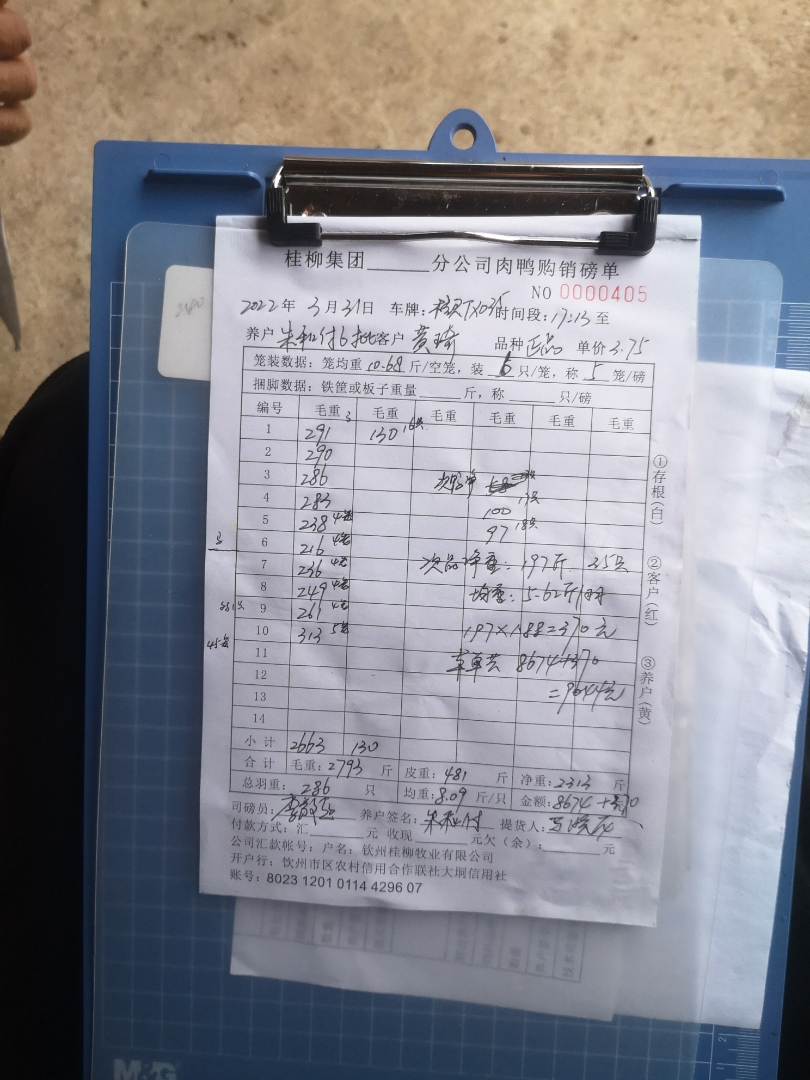 桂柳集团______分公司肉鸭购销磅单
NO 0000405
2022年 3月31日 车牌: 时间段:17:13至
养户 朱和付6批 客户 黄琦 品种 正品 单价 3.75
笼装数据:笼均重 10.68 斤/空笼,装 6 只/笼,称 5 笼/磅
捆脚数据:铁筐或板子重量______斤,称______只/磅
编号 毛重 毛重 毛重 毛重 毛重 毛重
1 291 130 16只
2 290
3 286
4 283 100 17只
5 238 4笼 97 18只
6 216 4笼
7 236 4笼 次品净重:197斤 35只
8 249 4笼 均重:5.62斤/只
9 261 4笼 197×1.88=370元
10 313 5笼 车单共 8674+370
11 =9044元
12
13
14
小计 2663 130
合计 毛重:2793 斤 皮重:481 斤 净重:2313 斤
总羽重: 286 只 均重:8.09 斤/只 金额:8674+370
司磅员: 养户签名:朱和付 提货人:
付款方式:汇______元 收现______元欠(余):______元
公司汇款帐号:户名:钦州桂柳牧业有限公司
开户行:钦州市区农村信用合作联社大垌信用社
账号:8023 1201 0114 4296 07
①存根(白)
②客户(红)
③养户(黄)
45笼
M&G